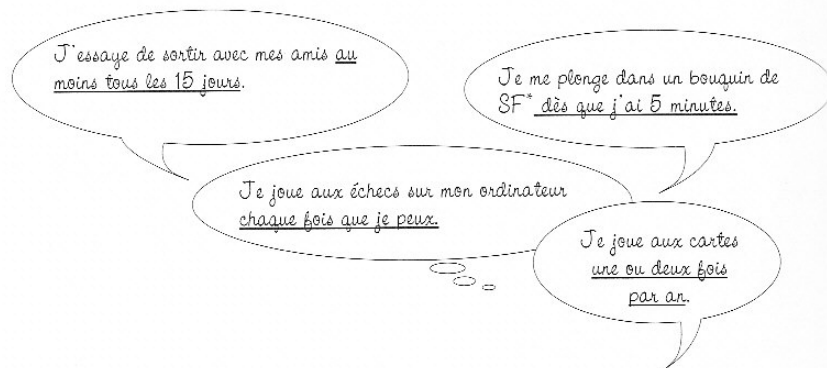 J'essaye de sortir avec mes amis au
moins tous les 15 jours.
Je me plonge dans un bouquin de
SF* dès que j'ai 5 minutes.
Je joue aux échecs sur mon ordinateur
chaque fois que je peux.
Je joue aux cartes
une ou deux fois
par an.